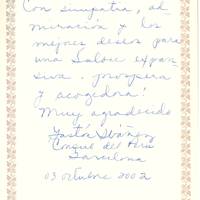 Con simpatía, ad
miración y los
mejores deseos para
una Salou expan
siva, próspera
y acogedora!
Muy agradecido
Gastón Ibáñez
Consul del Perú
Barcelona
03 octubre 2002